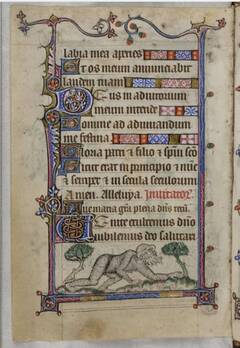 labia mea aperies
Et os meum annunciabit
laudem tuam
Deus in adiutorium
meum intende
Domine ad adiuvandum
me festina
Gloria patri & filio & spiri sco
Sicut erat in principio & nunc
& semper & in secula seculorum
Amen. Alleluya. Invitator.
Aue maria grã plena dñs tecũ.
Venite exultemus dño
iubilemus deo salutari